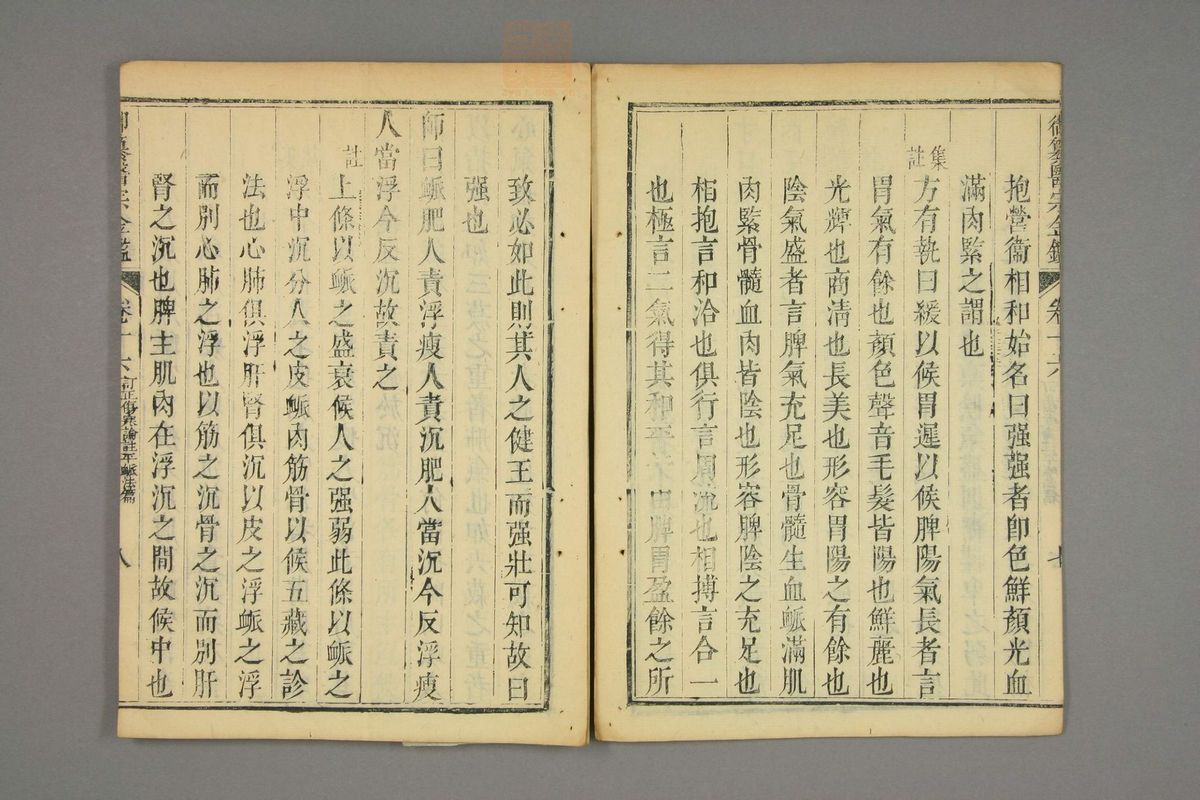 御纂醫宗金鑑 卷十六 七
抱營衞相和始名曰强强者卽色鮮顏光血
滿肉緊之謂也
集註 方有執曰緩以候胃遲以候脾陽氣長者言
胃氣有餘也顏色聲音毛髮皆陽也鮮麗也
光澤也商淸也長美也形容胃陽之有餘也
陰氣盛者言脾氣充足也骨髓生血脈滿肌
肉緊骨髓血肉皆陰也形容脾陰之充足也
相抱言和洽也俱行言順流也相搏言合一
也極言二氣得其和平不由脾胃盈餘之所
致必如此則其人之健王而强壯可知故曰
强也
師曰脈肥人責浮瘦人責沉肥人當沉今反浮瘦
人當浮今反沉故責之
註 上條以脈之盛衰候人之强弱此條以脈之
浮中沉分人之皮脈肉筋骨以候五藏之診
法也心肺俱浮肝腎俱沉以皮之浮脈之浮
而別心肺之浮也以筋之沉骨之沉而別肝
腎之沉也脾主肌肉在浮沉之間故候中也
御纂醫宗金鑑 卷十六 訂正傷寒論註平脈法篇 八